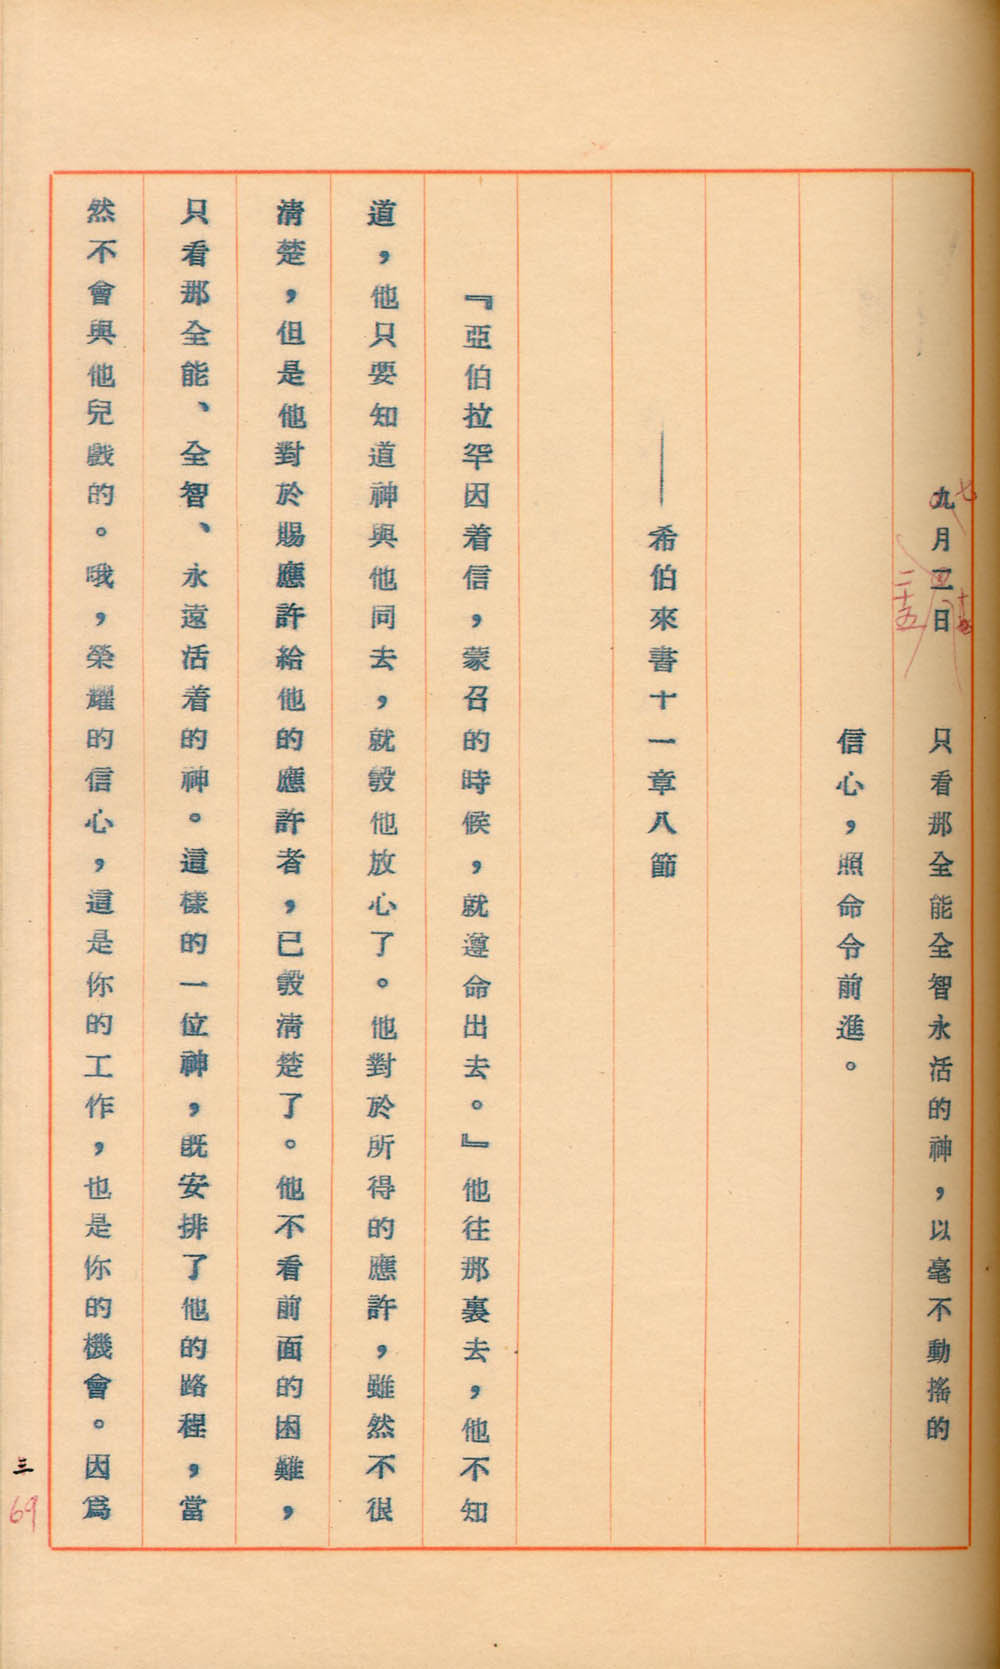 九月二日　　只看那全能全智永活的神，以毫不動搖的
七
二十五
信心，照命令前進。
——希伯來書十一章八節
『亞伯拉罕因着信，蒙召的時候，就遵命出去。』他往那裏去，他不知
道，他只要知道神與他同去，就彀他放心了。他對於所得的應許，雖然不很
清楚，但是他對於賜應許給他的應許者，已彀清楚了。他不看前面的困難，
只看那全能、全智、永遠活着的神。這樣的一位神，既安排了他的路程，當
然不會與他兒戲的。哦，榮耀的信心，這是你的工作，也是你的機會。因爲
三
69